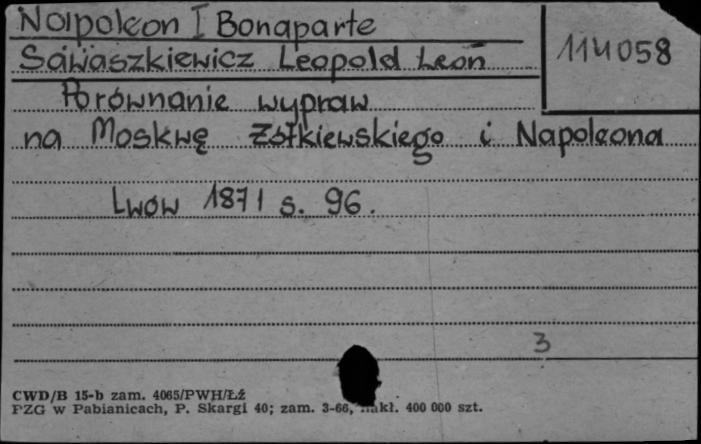 Napoleon I Bonaparte
114058
Sawaszkiewicz Leopold Leon
Porównanie wypraw
na Moskwę Żółkiewskiego i Napoleona
Lwów 1871 s. 96.
3
CWD/B 15-b zam. 4065/PWH/Łź
PZG w Pabianicach, P. Skargi 40; zam. 3-66, nakł. 400 000 szt.